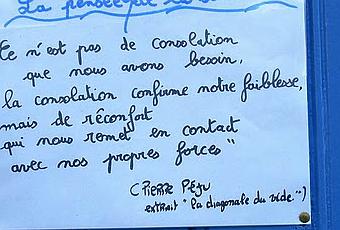 La pensée
Ce n'est pas de consolation
que nous avons besoin,
la consolation confirme notre faiblesse,
mais de réconfort
qui nous remet en contact
avec nos propres forces"
(PIERRE PÉJU
extrait "la diagonale du vide.")